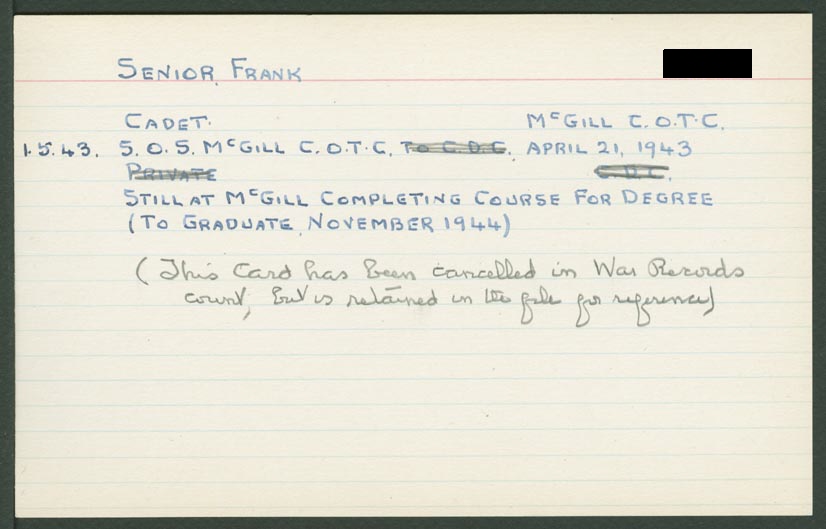 SENIOR, FRANK
CADET. McGILL C.O.T.C.
1.5.43. S.O.S. McGILL C.O.T.C. TO C.D.C. APRIL 21, 1943
PRIVATE C.D.C.
STILL AT McGILL COMPLETING COURSE FOR DEGREE
(TO GRADUATE NOVEMBER 1944)
(This Card has been cancelled in War Records
count, but is retained in the file for reference)